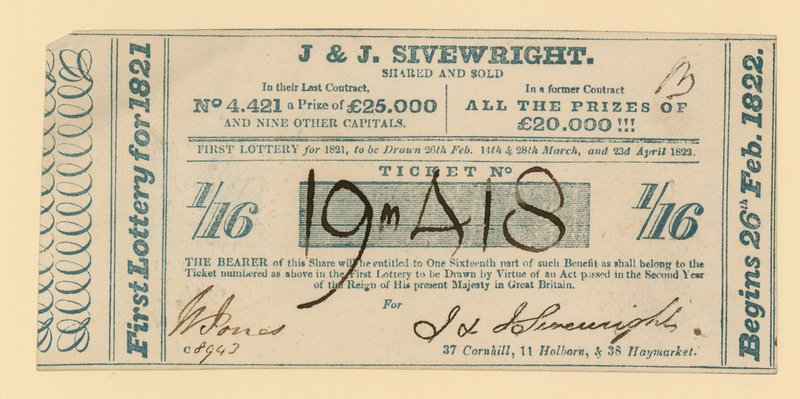 First Lottery for 1821
J & J. SIVEWRIGHT.
SHARED AND SOLD
In their Last Contract,
No 4.421 a Prize of £25.000
AND NINE OTHER CAPITALS.
In a former Contract
ALL THE PRIZES OF
£20.000 !!!
B
FIRST LOTTERY for 1821, to be Drawn 26th Feb. 14th & 28th March, and 23d April 1822.
TICKET No
1/16 19m418 1/16
THE BEARER of this Share will be entitled to One Sixteenth part of such Benefit as shall belong to the
Ticket numbered as above in the First Lottery to be Drawn by Virtue of an Act passed in the Second Year
of the Reign of His present Majesty in Great Britain.
For
W Jones J & J Sivewright
c 8943
37 Cornhill, 11 Holborn, & 38 Haymarket.
Begins 26th Feb. 1822.